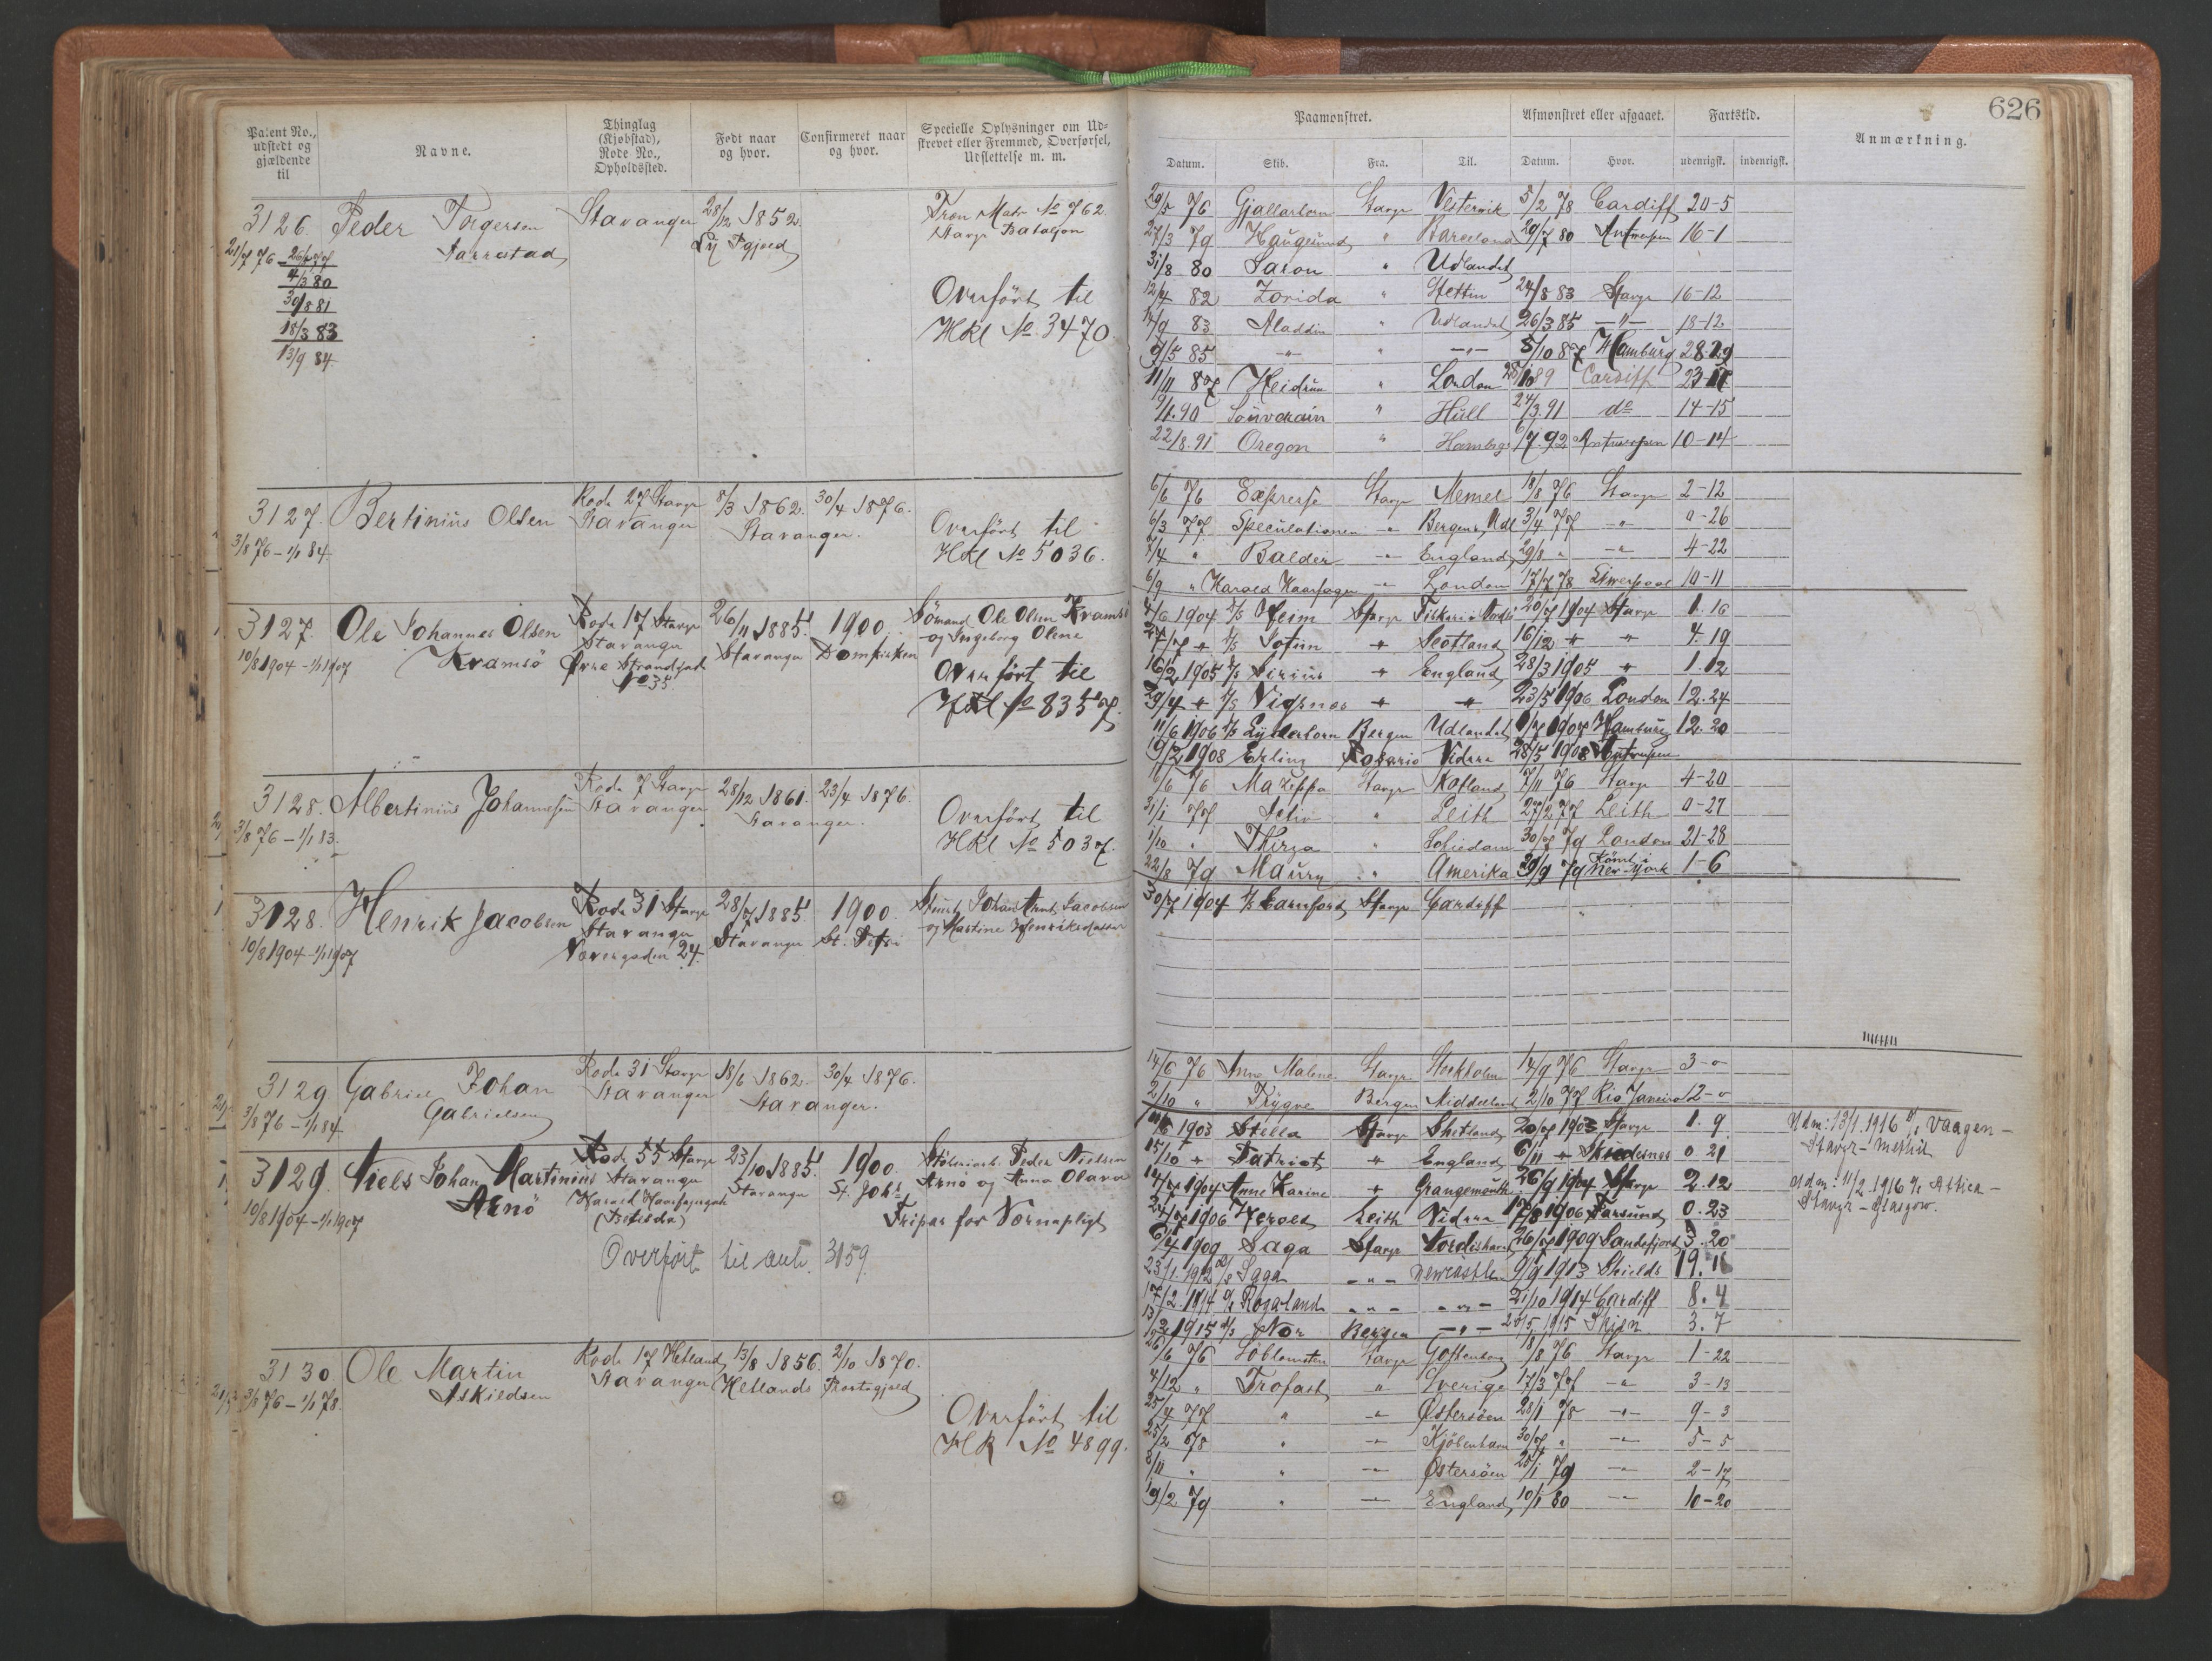 626
Patent No., udstedt og gjældende til
Navne.
Thinglag (Kjøbstad), Rode No., Opholdssted.
Født naar og hvor.
Confirmeret naar og hvor.
Specielle Oplysninger om Udskrevet eller Fremmed, Overførsel, Udslettelse m. m.
Paamønstret.
Afmønstret eller afgaaet.
Fartstid.
Anmærkning.
Datum. Skib. Fra. Til. Datum. Hvor. udenrigsk. indenrigsk.
3126. Peder Torgersen Stavanger 28/12 1852.
Tarrestad
No 762
Stavgr Bataljon
21/7 76
4/3 80
30/8 81
18/3 83
13/9 84
Overført til
Hkl No. 3470.
29/5 76 Gjallarhorn Stavgr Vestervik 5/2 78 Cardiff 20-5
27/3 79 Haugesund " Barcelona 29/7 80 Antwerpen 16-1
31/8 80 Saron " Udlandet
12/4 82 Zorida " Stettin 24/8 83 Stavgr 16-12
14/9 83 Aladdin " Udlandet 26/3 85 -"- 18-12
9/5 85 -"- " -"- 5/10 87 Hamburg 28-29
11/11 87 Heidrun " London Cardiff
Souverain " Hull 24/3.91 do 14-15
22/8.91 Oregon " Hambrg 6/7.92 Antwerpen 10-14
3127. Bertinius Olsen Rode 27 Stavgr 8/3 1862. 30/4 1876.
Stavanger Stavanger.
3/8 76 - 1/1 84.
Overført til
Hkl No 5036.
6/6 76 Expresse Stavgr Memel 18/8 76 Stavgr 2-12
6/3 77 Speculationen -"- Bergen, Udl 3/4 77 -"- 0-26
8/4 " Balder -"- England 29/8 " -"- 4-22
6/9 " Harald Haarfager -"- London 17/7 78 Liverpool 10-11
3127. Ole Johannes Olsen Rode 17 Stavgr 26/11 1885. 1900. Sömand Ole Olsen Kramsö
Kramsö Stavanger Stavanger Domkirken og Ingeborg Olene
10/8 1904 - 1/1 1907
Øvre Strandgade
No 35.
Overført til
Hkl No 8357.
4/6 1904 Heim Stavgr 20/7 1904 Stavgr 1.16
27/7 " Sofun " Scotland 16/12 " " 4.19
16/2 1905 Sirius " England 28/3 1905 " 1.12
29/4 " Vigsnes " " 23/5 1906 London 12.24
11/6 1906 Lyderhorn Bergen Udlandet 1907 Hamburg 12.20
19/2 1908 Erling Rosario Videre 28/5 1908 Antwerpen
3128. Albertinius Johannesen Rode 7 Stavgr 28/12 1861. 23/4 1876.
Stavanger Stavanger.
3/8 76 - 1/1 83.
Overført til
Hkl No 5037.
16/6 76 Mazeppa Stavgr Kotland 7/11 76 Stavgr 4-20
31/1 77 Activ " Leith 27/2 77 Leith 0-27
1/10 " Thirza " Schiedam 30/7 79 London 21-28
22/8 79 Maury " Amerika 29/9 79 Rømt i New-York 1-6
3128. Henrik Jacobsen Rode 31 Stavgr 28/7 1885. 1900.
Stavanger Stavanger St. Petri og Martine Henriksdatter
10/8 1904 - 1/1 1907
Vævergaden 24.
30/7 1904 Carnford Stavgr Cardiff
3129 Gabriel Johan Rode 31 Stavgr 18/6 1862. 30/4 1876.
Gabrielsen Stavanger Stavanger.
3/8 76 - 1/1 84
14/6 76 Anne Malene Stavgr Stockholm 14/9 76 Stavgr 3-0
2/10 " Trygve Bergen Middelhavet 2/10 77 Rio Janeiro 12-0
3129. Niels Johan Martinius Rode 55 Stavgr 23/10 1885. 1900. Peder Nielsen
Arnö Stavanger Stavanger St. Johs Arnö og Anna Olava
10/8 1904 - 1/1 1907
(Bethesda)
Fripas for Værnepligt
Overført til ant. 3159.
1903 Stella Stavgr Shetland 20/7 1903 Stavgr 1.9
15/10 " Patriot " England 6/11 " Skudesnes 0.21
14/7 1904 Anne Karine " Grangemouth 26/9 1904 Stavgr 2.12
24/7 1906 Herold Leith Videre 17/8 1906 Farsund 0.23
6/4 1909 Saga Stavgr Nordishavet 26/7 1909 Sandefjord 3.20
23/1.1912 Saga -"- Newcastle 9/9 1913 Shields 19.
17/2.1914 Rogaland -"- -"- 21/10 1914 Cardiff 8.4
13/2 1915 Nor Bergen -"- 20/5 1915 Skien 3.7
Udm: 13/1.1916 Vaagen -
Stavgr - Methil
Udm: 11/2.1916 Attica -
Stavgr - Glasgow.
3130. Ole Martin Rode 17 Hetland 13/8 1856. 2/10 1870.
Askildsen Stavanger Hetlands Prestegjeld
3/8 76 - 1/1 78.
Overført til
HK No 4899.
26/6 76 Soblomsten Stavgr Gothenborg 18/8 76 Stavgr 1-22
4/12 " Trofast " Sverige 17/3 77 -"- 3-13
25/4 77 " -"- Østersöen 28/1 78 -"- 9-3
25/2 78 " -"- Kjöbenhavn 30/7 " -"- 5-5
8/11 " " -"- Østersöen 25/1 79 -"- 2-17
19/2 79 " -"- England 10/1 80 -"- 10-20